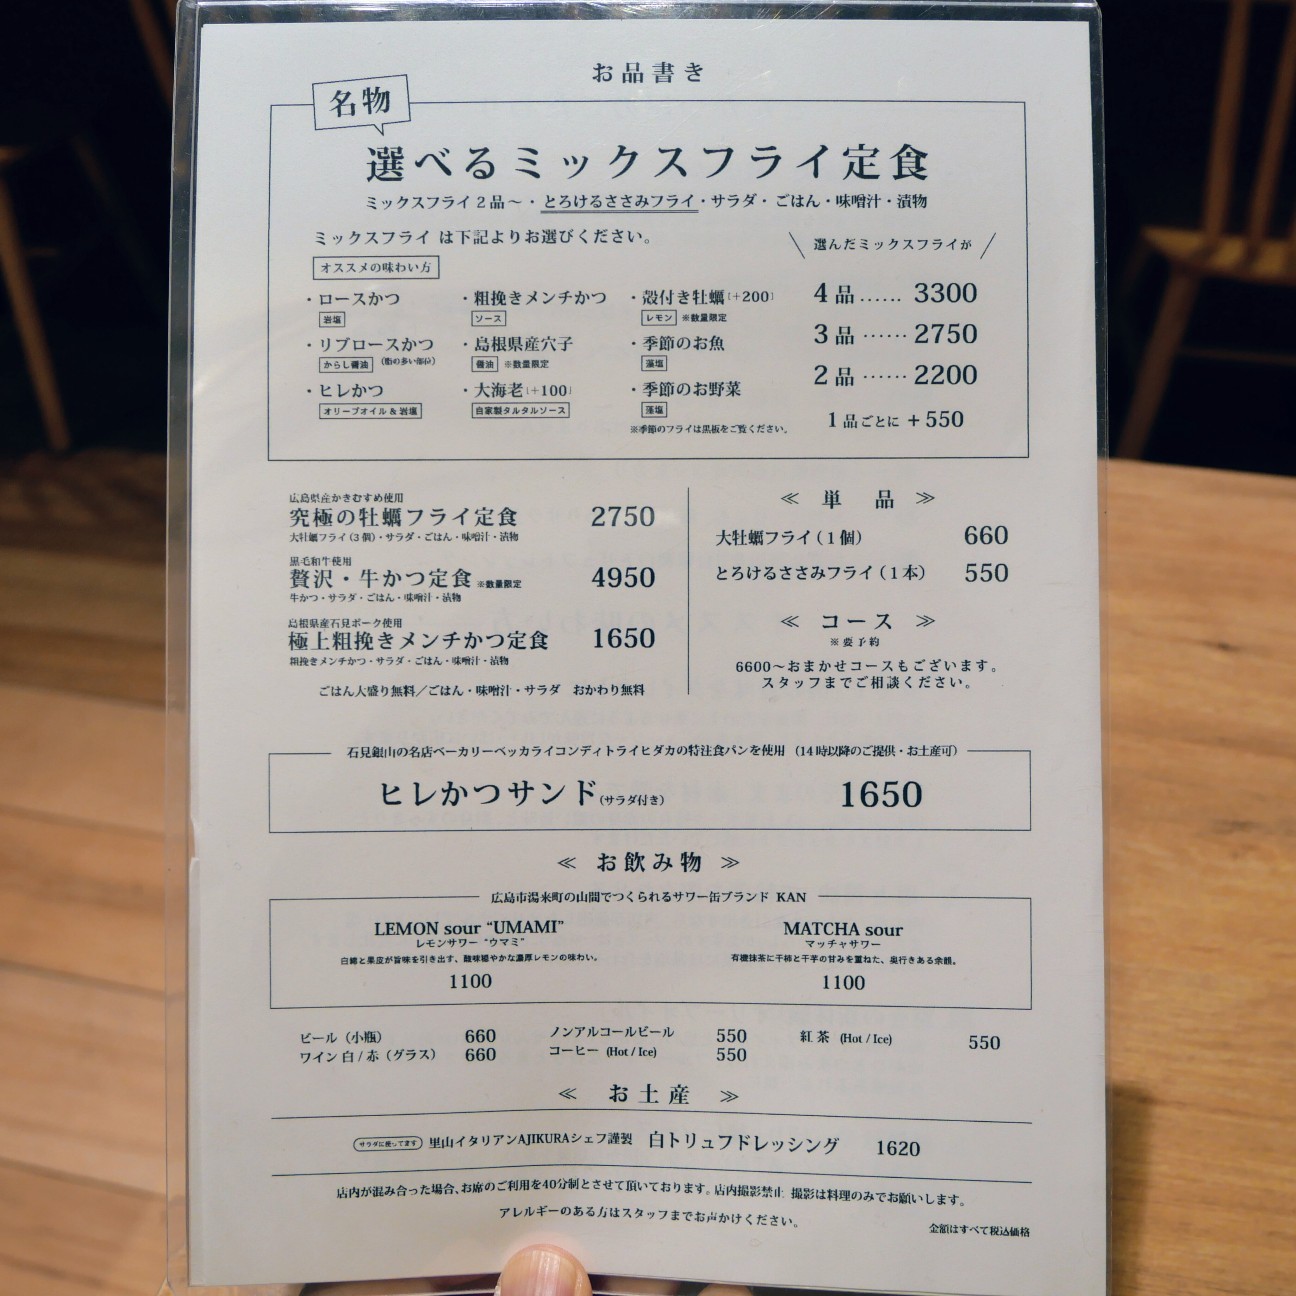 お品書き
名物
選べるミックスフライ定食
ミックスフライ2品〜・とろけるささみフライ・サラダ・ごはん・味噌汁・漬物
ミックスフライ は下記よりお選びください。
オススメの味わい方
・ロースかつ
岩塩
・リブロースかつ
からし醤油 (脂の多い部位)
・ヒレかつ
オリーブオイル & 岩塩
・粗挽きメンチかつ
ソース
・島根県産穴子
醤油 ※数量限定
・大海老[+100]
自家製タルタルソース
・殻付き牡蠣[+200]
レモン ※数量限定
・季節のお魚
藻塩
・季節のお野菜
藻塩
※季節のフライは黒板をご覧ください。
選んだミックスフライが
4品…… 3300
3品…… 2750
2品…… 2200
1品ごとに +550
広島県産かきむすめ使用
究極の牡蠣フライ定食 2750
大牡蠣フライ(3個)・サラダ・ごはん・味噌汁・漬物
黒毛和牛使用
贅沢・牛かつ定食 ※数量限定 4950
牛かつ・サラダ・ごはん・味噌汁・漬物
島根県産石見ポーク使用
極上粗挽きメンチかつ定食 1650
粗挽きメンチかつ・サラダ・ごはん・味噌汁・漬物
ごはん大盛り無料/ごはん・味噌汁・サラダ おかわり無料
≪ 単品 ≫
大牡蠣フライ(1個) 660
とろけるささみフライ(1本) 550
≪ コース ≫
※要予約
6600〜おまかせコースもございます。
スタッフまでご相談ください。
石見銀山の名店ベーカリーベッカライコンディトライヒダカの特注食パンを使用 (14時以降のご提供・お土産可)
ヒレかつサンド(サラダ付き) 1650
≪ お飲み物 ≫
広島市湯来町の山間でつくられるサワー缶ブランド KAN
LEMON sour “UMAMI”
レモンサワー “ウマミ”
白麹と果皮が旨味を引き出す、酸味穏やかな濃厚レモンの味わい。
1100
MATCHA sour
マッチャサワー
有機抹茶に干柿と干芋の甘みを重ねた、奥行きある余韻。
1100
ビール (小瓶) 660
ワイン 白/赤 (グラス) 660
ノンアルコールビール 550
コーヒー (Hot / Ice) 550
紅茶 (Hot / Ice) 550
≪ お土産 ≫
サラダに使ってます 里山イタリアンAJIKURAシェフ謹製 白トリュフドレッシング 1620
店内が混み合った場合、お席のご利用を40分制とさせて頂いております。店内撮影禁止 撮影は料理のみでお願いします。
アレルギーのある方はスタッフまでお声かけください。
金額はすべて税込価格